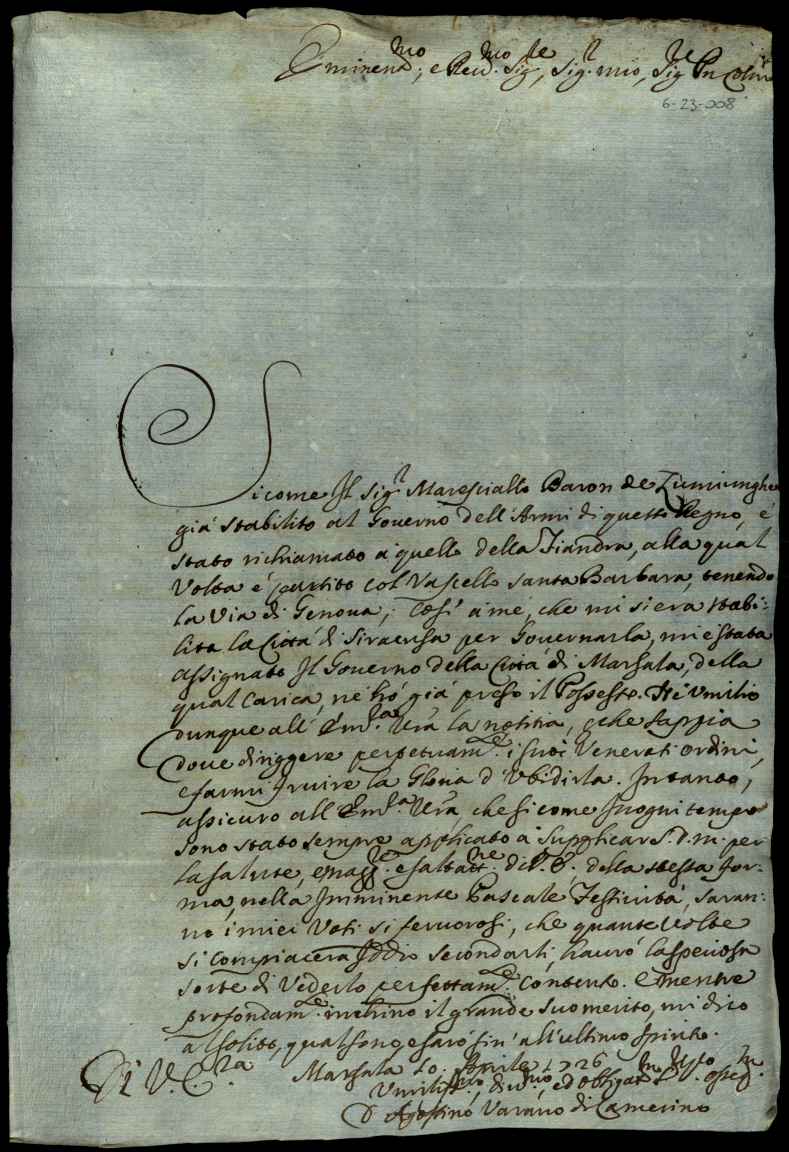 Eminen.mo, e Reu.mo Sig.re, Sig.r mio, Sig.re P.n Col.mo
6-23-008
Sicome Il Sig.r Maresciallo Baron de Zumiunghen
già stabilito al Gouerno dell'Armi di questo Regno, è
stato richiamato à quello della Fiandra, alla qual
Volta è partito col Vascello Santa Barbara, tenendo
la Via di Genoua; Così a me, che mi si era stabi-
lita la Città di Siracusa per Gouernarla, mi è stata
assignato Il Gouerno della Città di Marsala, della
qual Carica, ne hò già preso il Possesso. Ne umilio
dunque all' Em.za Vra la notitia, perche sappia
doue diriggere perpetuam.te i suoi Venerati ordini,
e farmi fruire la Gloria d'Vbidirla. Intanto,
assicuro all'Em.za Vra che sicome In ogni tempo
sono stato sempre applicato à supplicar S.D.M. per
la salute, e magg.re esaltat.ne di V.E., della stessa for-
ma, nella Imminente Pascale Festiuità, saran-
no i miei Voti si feruorosi, che quante uolte
si compiacerà Iddio secondarli, haurò la speciosa
sorte di Vederlo perfettam.te Contento. E mentre
profondam.te inchino il grande suo merito, mi dico
al solito, qual sono, e sarò sin' all'ultimo spirito.
Di V.E.za Marsala 10. Aprile 1726
Vmiliss.mo, diu.mo, ed obligat.mo osseq.mo
D. Agostino Varano di Camerino